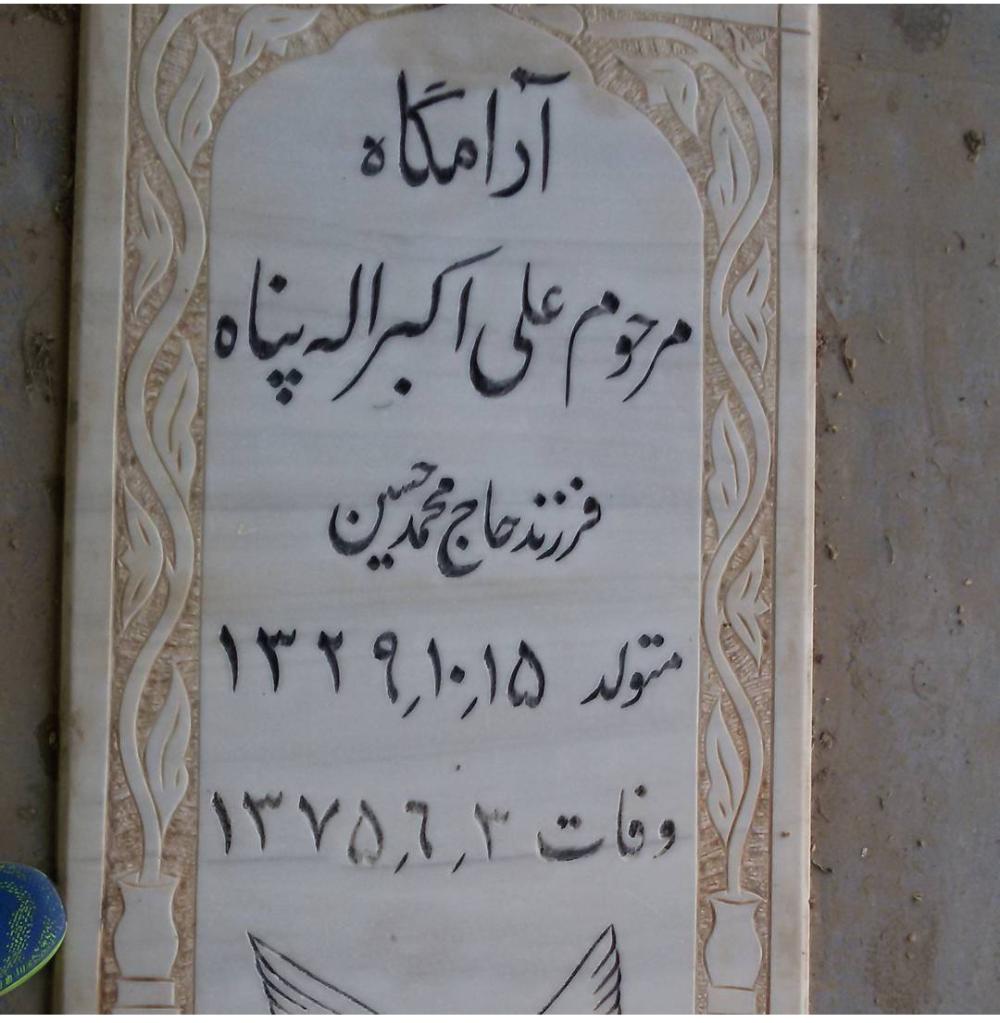 آرامگاه
مرحوم علی اکبر اله پناه
فرزند حاج محمد حسین
متولد ۱۵ر۱۰ر۱۳۲۹
وفات ۳ر۶ر۱۳۷۵